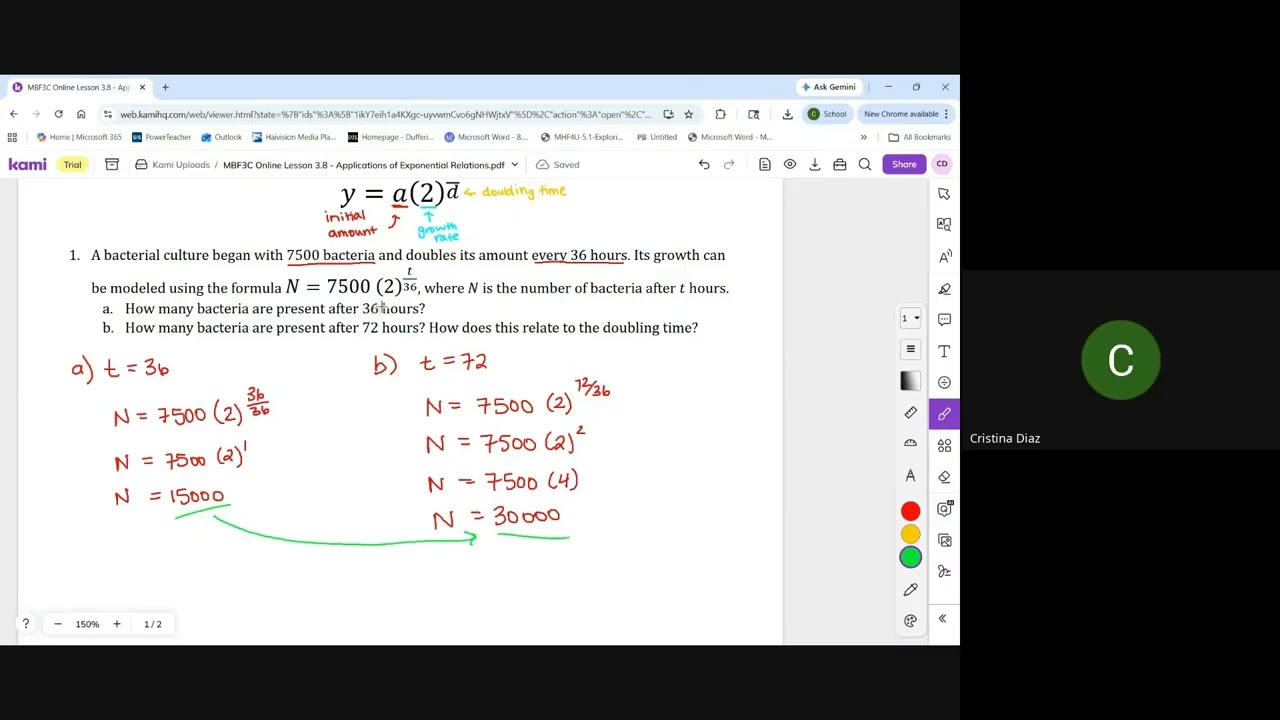 MBF3C Online Lesson 3.8 - Ap
Ask Gemini
web.kamihq.com/web/viewer.html?state=%7B"ids"%3A%5B"1ikY7eih1a4KXgc-uyvwmCvo6gNHWjtxV"%5D%2C"action"%3A"open"%2C"...
School
New Chrome available
Home | Microsoft 365
PowerTeacher
Outlook
Haivision Media Pla...
Homepage - Dufferi...
Microsoft Word - 8....
MHF4U-5.1-Explori...
Untitled
Microsoft Word - M...
All Bookmarks
kami
Trial
Kami Uploads / MBF3C Online Lesson 3.8 - Applications of Exponential Relations.pdf
Saved
Share
CD
y = a(2)d ← doubling time
initial amount
growth rate
1. A bacterial culture began with 7500 bacteria and doubles its amount every 36 hours. Its growth can
be modeled using the formula N = 7500 (2)^(t/36), where N is the number of bacteria after t hours.
a. How many bacteria are present after 36 hours?
b. How many bacteria are present after 72 hours? How does this relate to the doubling time?
a) t = 36
N = 7500 (2)^(36/36)
N = 7500 (2)^1
N = 15000
b) t = 72
N = 7500 (2)^(72/36)
N = 7500 (2)^2
N = 7500 (4)
N = 30000
1
150%
1 / 2
C
Cristina Diaz